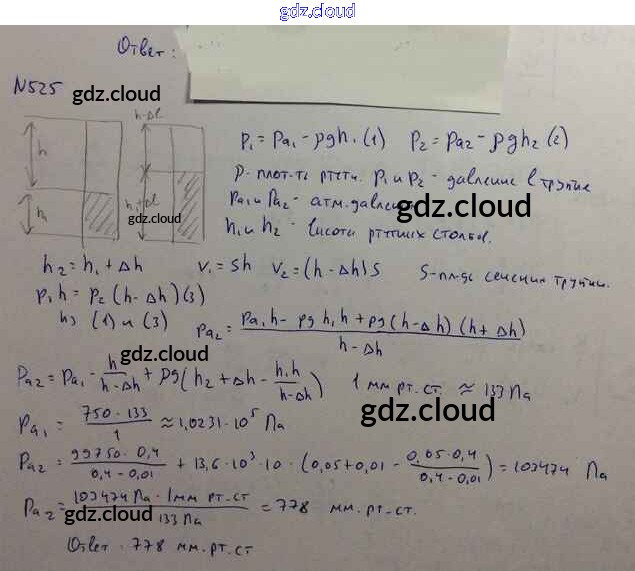 gdz.cloud
Ответ:
N525
gdz.cloud
h-Δl
h
h₁
h₁+Δl
gdz.cloud
P₁ = Pa₁ - ρgh₁ (1) P₂ = Pa₂ - ρgh₂ (2)
ρ-плот-ть ртути. P₁ и P₂ - давление в трубке
Pa₁ и Pa₂ - атм. давлен
gdz.cloud
h₁ и h₂ - высоты ртутных столбов.
h₂ = h₁ + Δh V₁ = Sh V₂ = (h - Δh)S S-пл-дь сечения трубки.
P₁h = P₂(h - Δh) (3)
из (1) и (3) Pa₂ = (Pa₁h - ρgh₁h + ρg(h - Δh)(h + Δh))/(h - Δh)
gdz.cloud
Pa₂ = Pa₁ - h/(h - Δh) + ρg(h₂ + Δh - h₁h/(h - Δh)) 1 мм рт. ст. ≈ 133 Па
gdz.cloud
Pa₁ = (750 · 133)/1 ≈ 1,0231 · 10⁵ Па
Pa₂ = (99750 · 0,4)/(0,4 - 0,01) + 13,6 · 10³ · 10 · (0,05 + 0,01 - (0,05 · 0,4)/(0,4 - 0,01)) = 103474 Па
Pa₂ = (103474 Па · 1 мм рт. ст)/(133 Па) = 778 мм. рт. ст.
gdz.cloud
Ответ · 778 мм. рт. ст